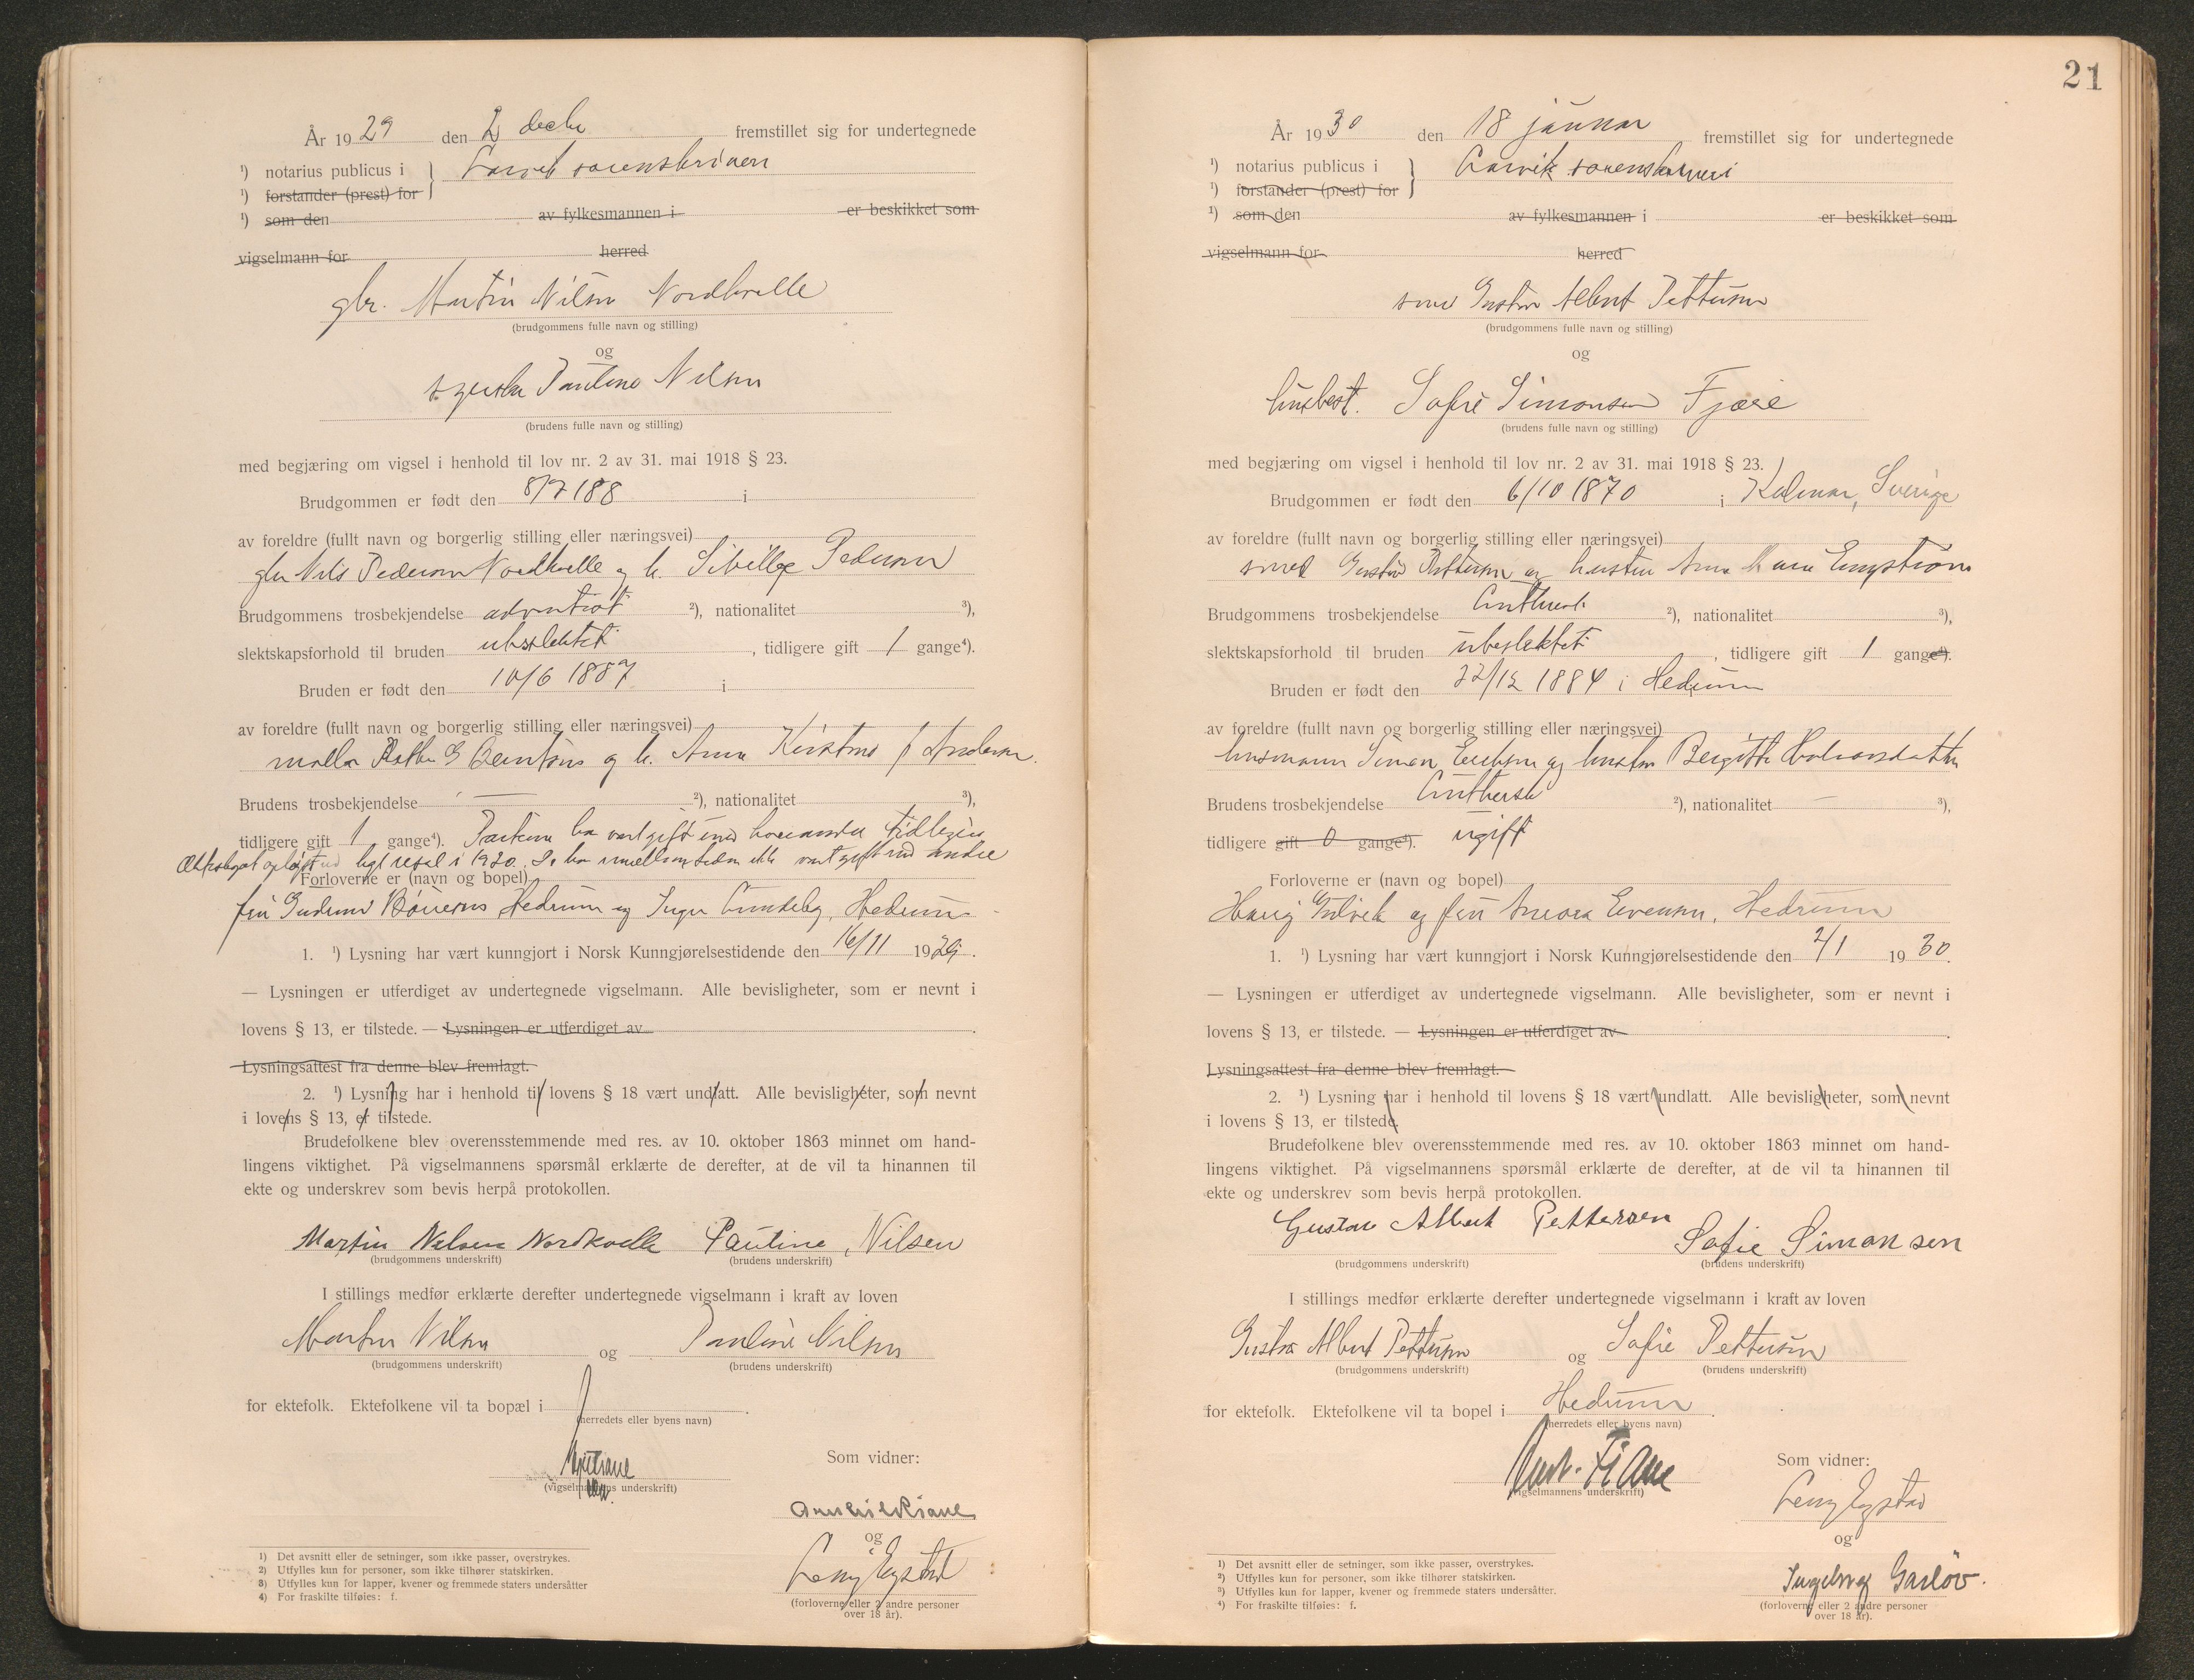 År 1929 den 2 decbr fremstillet sig for undertegnede
¹) notarius publicus i } Larvik sorenskriveri
¹) forstander (prest) for
¹) som den av fylkesmannen i er beskikket som
vigselmann for herred
gbr. Martin Nilsen Nordkvelle
(brudgommens fulle navn og stilling)
og
Pauline Nilsen
(brudens fulle navn og stilling)
med begjæring om vigsel i henhold til lov nr. 2 av 31. mai 1918 § 23.
Brudgommen er født den 8/7 188 i
av foreldre (fullt navn og borgerlig stilling eller næringsvei)
gbr Nils Pedersen Nordkvelle og h. Sibille Pedersen
Brudgommens trosbekjendelse adventist ²), nationalitet ³),
slektskapsforhold til bruden ubeslektet , tidligere gift 1 gange⁴).
Bruden er født den 10/6 1887 i
av foreldre (fullt navn og borgerlig stilling eller næringsvei)
møller og h. Anna Kirstine f Andersen.
Brudens trosbekjendelse — ²), nationalitet ³),
tidligere gift 1 gange⁴). Partene har vært gift med hverandre tidligere
Ekteskapet opløst ved kgl resol i 1920. De har imellem tiden ikke vært gift med andre
Forloverne er (navn og bopel)
fru Gudrun Hedrum og Inger Hedrum
1. ¹) Lysning har vært kunngjort i Norsk Kunngjørelsestidende den 16/11 1929.
— Lysningen er utferdiget av undertegnede vigselmann. Alle bevisligheter, som er nevnt i
lovens § 13, er tilstede. — Lysningen er utferdiget av .
Lysningsattest fra denne blev fremlagt.
2. ¹) Lysning har i henhold til lovens § 18 vært undlatt. Alle bevisligheter, som nevnt
i lovens § 13, er tilstede.
Brudefolkene blev overensstemmende med res. av 10. oktober 1863 minnet om hand-
lingens viktighet. På vigselmannens spørsmål erklærte de derefter, at de vil ta hinannen til
ekte og underskrev som bevis herpå protokollen.
Martin Nilsen Nordkvelle Pauline Nilsen
(brudgommens underskrift) (brudens underskrift)
I stillings medfør erklærte derefter undertegnede vigselmann i kraft av loven
Martin Nilsen og Pauline Nilsen
(brudgommens underskrift) (brudens underskrift)
for ektefolk. Ektefolkene vil ta bopæl i .
(herredets eller byens navn)
Som vidner:
(vigselmannens underskrift)
og
Leny Eystad
(forloverne eller 2 andre personer
over 18 år).
1) Det avsnitt eller de setninger, som ikke passer, overstrykes.
2) Utfylles kun for personer, som ikke tilhører statskirken.
3) Utfylles kun for lapper, kvener og fremmede staters undersåtter
4) For fraskilte tilføies: f.
21
År 1930 den 18 januar fremstillet sig for undertegnede
¹) notarius publicus i } Larvik sorenskriveri
¹) forstander (prest) for
¹) som den av fylkesmannen i er beskikket som
vigselmann for herred
smed Gustav Albert Pettersen
(brudgommens fulle navn og stilling)
og
husbest. Sofie Simonsen Fjære
(brudens fulle navn og stilling)
med begjæring om vigsel i henhold til lov nr. 2 av 31. mai 1918 § 23.
Brudgommen er født den 6/10 1870 i Kalmar, Sverige
av foreldre (fullt navn og borgerlig stilling eller næringsvei)
smed Gustav Pettersen og hustru Anna Maria Engström
Brudgommens trosbekjendelse Luthersk ²), nationalitet ³),
slektskapsforhold til bruden ubeslektet , tidligere gift 1 gange⁴).
Bruden er født den 22/12 1884 i Hedrum
av foreldre (fullt navn og borgerlig stilling eller næringsvei)
husmann Simon Eriksen og hustru Bergitte Halvorsdatter
Brudens trosbekjendelse Luthersk ²), nationalitet — ³),
tidligere gift 0 gange⁴). ugift
Forloverne er (navn og bopel)
og fru Aurora Evensen, Hedrum
1. ¹) Lysning har vært kunngjort i Norsk Kunngjørelsestidende den 2/1 1930.
— Lysningen er utferdiget av undertegnede vigselmann. Alle bevisligheter, som er nevnt i
lovens § 13, er tilstede. — Lysningen er utferdiget av .
Lysningsattest fra denne blev fremlagt.
2. ¹) Lysning har i henhold til lovens § 18 vært undlatt. Alle bevisligheter, som nevnt
i lovens § 13, er tilstede.
Brudefolkene blev overensstemmende med res. av 10. oktober 1863 minnet om hand-
lingens viktighet. På vigselmannens spørsmål erklærte de derefter, at de vil ta hinannen til
ekte og underskrev som bevis herpå protokollen.
Gustav Albert Pettersen Sofie Simonsen
(brudgommens underskrift) (brudens underskrift)
I stillings medfør erklærte derefter undertegnede vigselmann i kraft av loven
Gustav Albert Pettersen og Sofie Pettersen
(brudgommens underskrift) (brudens underskrift)
for ektefolk. Ektefolkene vil ta bopel i Hedrum .
(herredets eller byens navn)
Som vidner:
(vigselmannens underskrift)
Leny Eystad
og
Ingeborg
(forloverne eller 2 andre personer
over 18 år).
¹) Det avsnitt eller de setninger, som ikke passer, overstrykes.
²) Utfylles kun for personer, som ikke tilhører statskirken.
³) Utfylles kun for lapper, kvener og fremmede staters undersåtter.
⁴) For fraskilte tilføies: f.